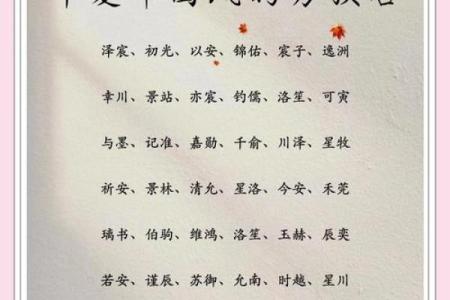 泽宸、初光、以安、锦佑、宸子、逸洲
幸川、景站、亦宸、钓儒、洛笙、可寅
与墨、记准、嘉勋、千俞、川泽、星牧
祈安、景林、清允、星洛、今安、禾莞
璃书、伯驹、维鸿、洛笙、玉赫、辰奕
若安、谨辰、苏御、允南、时越、星川